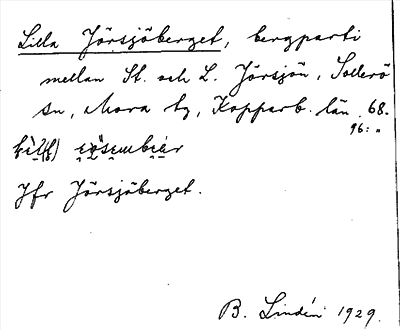 Lilla Jörsjöberget, bergparti
mellan St. och L. Jörsjön, Sollerö
sn, Mora tg, Kopparb. län. 68.
96: "
Jfr Jörsjöberget.
B. Lindén 1929.